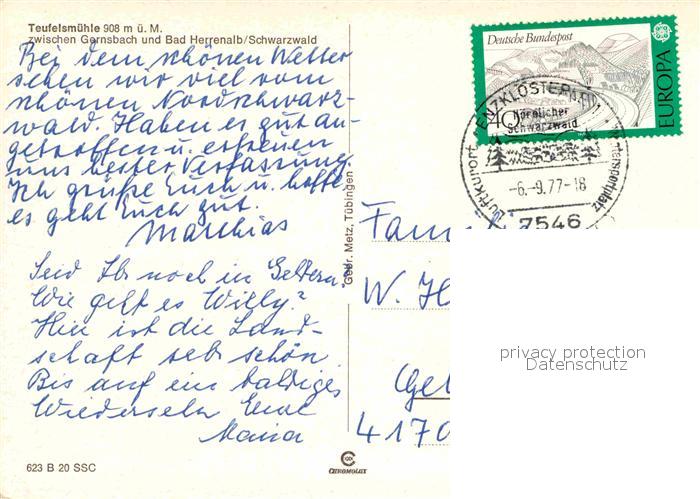 Teufelsmühle 908 m ü. M.
zwischen Gernsbach und Bad Herrenalb/Schwarzwald
Bei dem schönen Wetter
sehen wir viel vom
schönen Nordschwarz-
wald. Haben es gut an-
getroffen u. erfreuen
uns bester Verfassung.
Ich grüße Euch u. hoffe
es geht Euch gut.
Matthias
Seid Ihr noch in Geldern?
Wie geht es Willy?
Hier ist die Land-
schaft sehr schön
Bis auf ein baldiges
Wiedersehn Eure
Maria
623 B 20 SSC
Gebr. Metz, Tübingen
CHROMOLUX
Deutsche Bundespost
EUROPA
40
ENZKLÖSTERLE
Nördlicher
Schwarzwald
Luftkurort
Wintersportplatz
-6.-9.77-18
7546
Fam
W. H
Gel
4170
privacy protection
Datenschutz